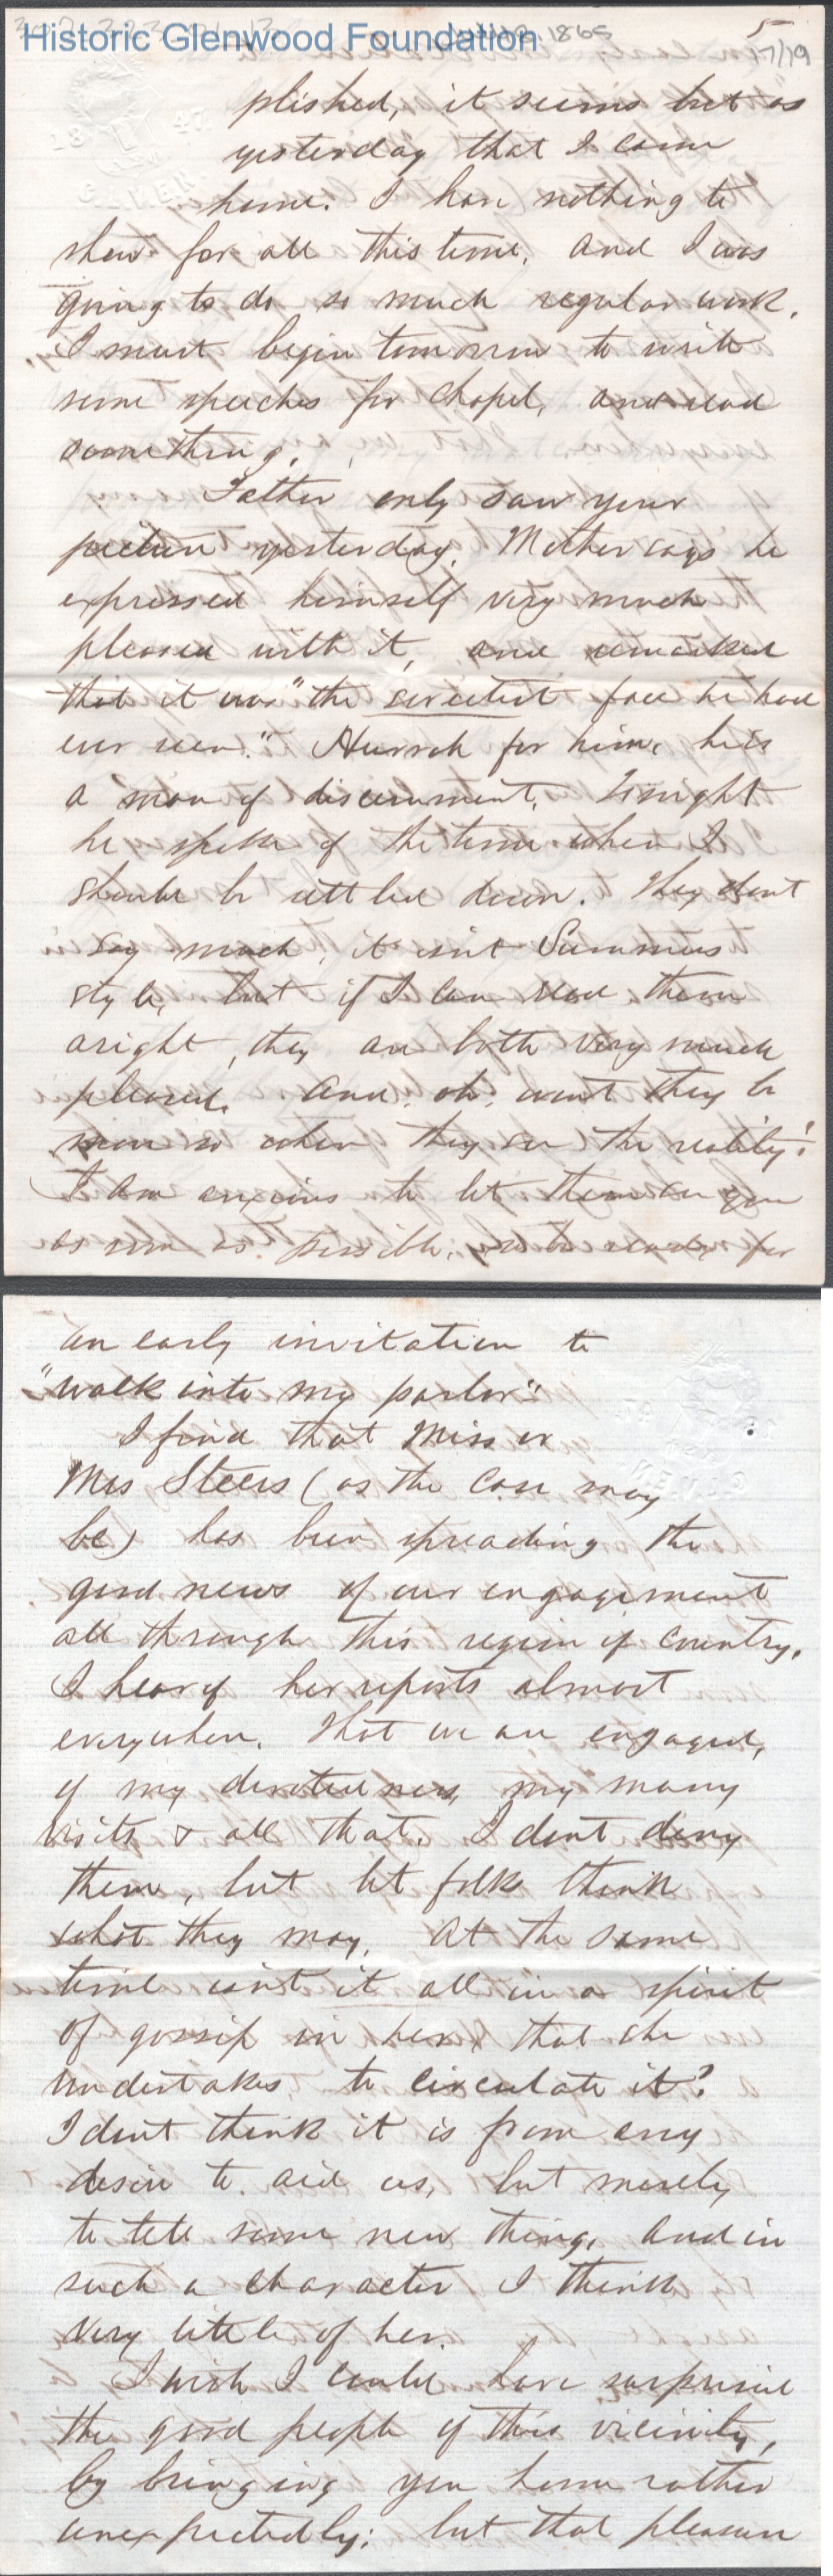 Historic Glenwood Foundation
1865
5
17/19
plished, it seems but as
yesterday that I came
home. I have nothing to
show for all this time, and I was
going to do so much regular work.
I must begin tomorrow to write
some speeches for Chapel, and read
something.
Father only saw your
picture yesterday. Mother says he
expressed himself very much
pleased with it, and remarked
that it was "the sweetest face he had
ever seen." Hurrah for him, he is
a man of discernment. Tonight
he spoke of the time when I
should be settled down. They dont
say much, it isn't Summers
style, but if I can read them
aright, they are both very much
pleased. And, oh, wont they be
more so when they see the reality!
I am anxious to let them see you
as soon as possible; so be ready for
an early invitation to
"walk into my parlor"
I find that Miss or
Mrs Steers (as the case may
be) has been spreading the
good news of our engagement
all through this region of country.
I hear of her reports almost
everywhere. That we are engaged,
of my devotedness, my many
visits & all that. I dont deny
them, but let folk think
what they may. At the same
time isn't it all in a spirit
of gossip in her, that she
undertakes to circulate it?
I dont think it is from any
desire to aid us, but merely
to tell some new thing, and in
such a character I think
very little of her.
I wish I could have surprised
the good people of this vicinity,
by bringing you home rather
unexpectedly; but that pleasure